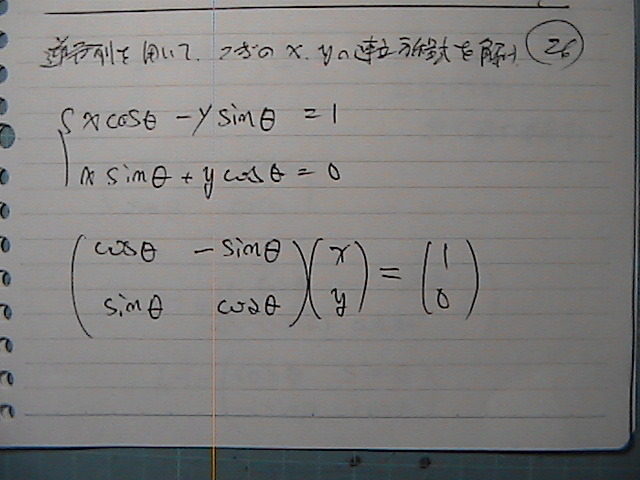 逆行列を用いて、つぎの x, yの連立方程式を解け 26
x cosθ - y sinθ = 1
x sinθ + y cosθ = 0
( cosθ - sinθ ) ( x ) = ( 1 )
( sinθ cosθ ) ( y ) ( 0 )